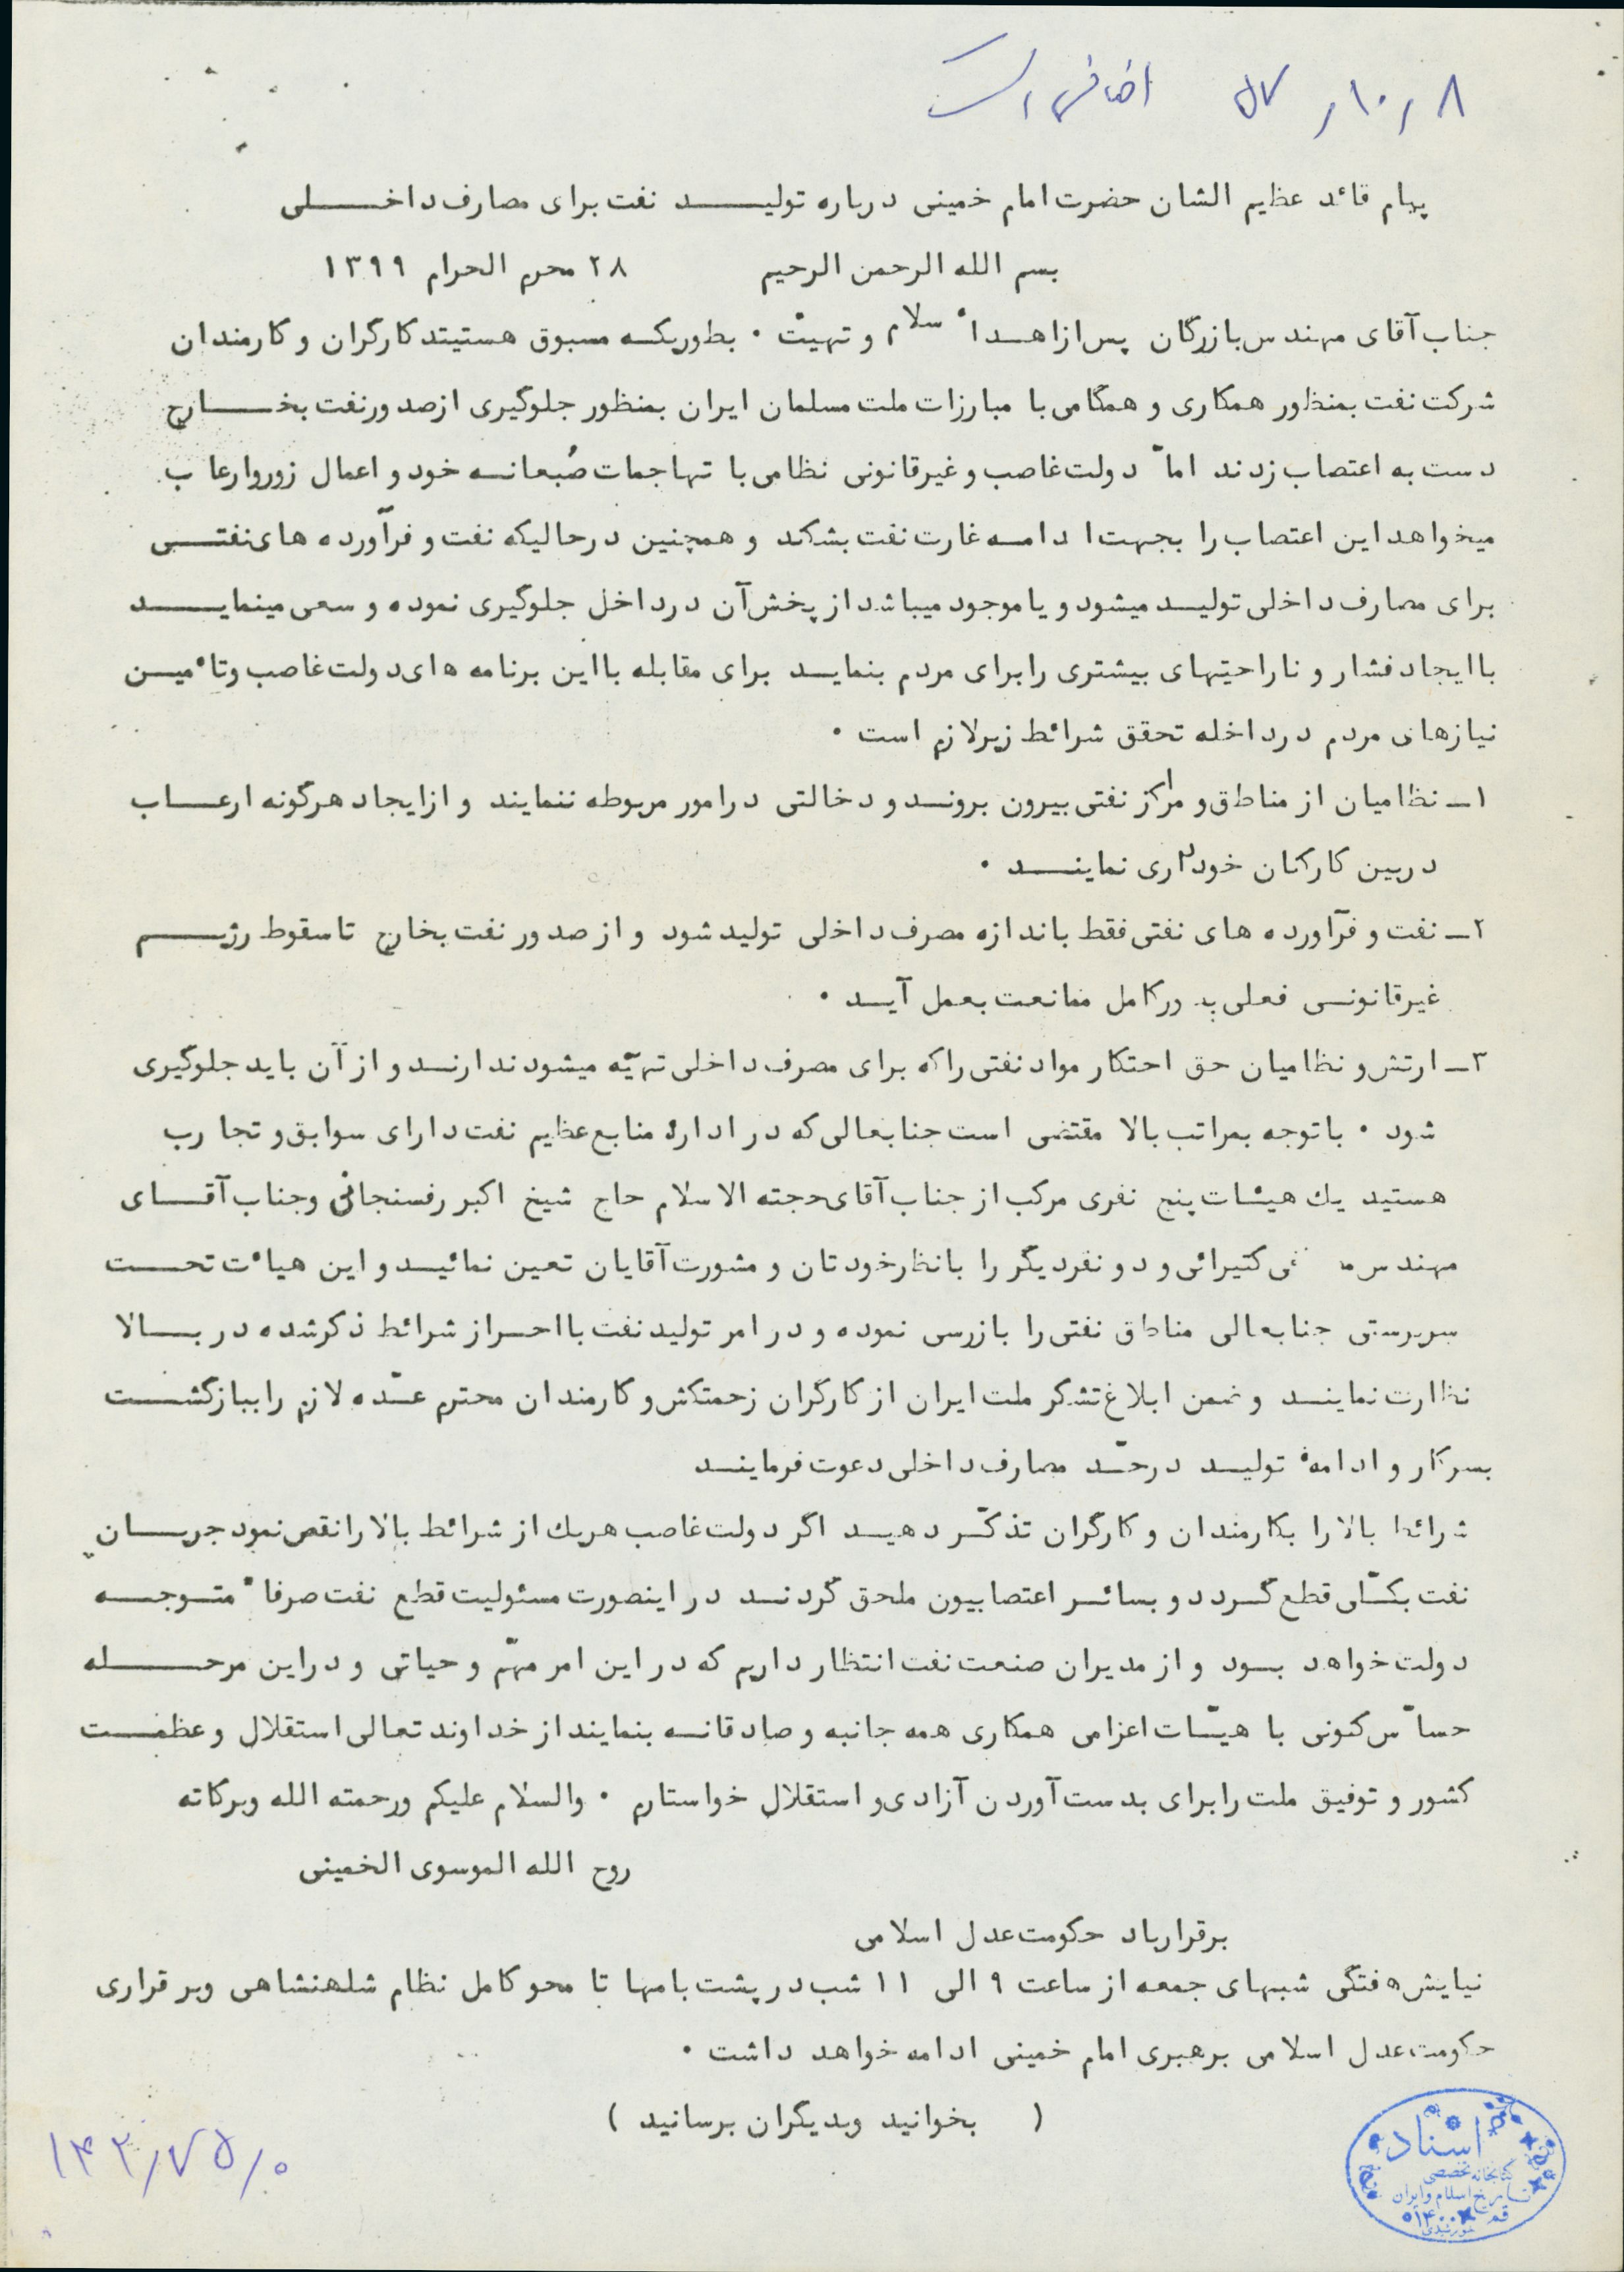 ۸ر۱۰ر۵۷ اضافی است
پیام قائد عظیم الشان حضرت امام خمینی درباره تولیـــد نفت برای مصارف داخـــلی
بسم الله الرحمن الرحیم ۲۸ محرم الحرام ۱۳۹۹
جناب آقای مهندس بازرگان پس از اهـدا ٔ سلام و تهیّت ۰ بطوریکـه مسبوق هستیتد کارگران و کارمندان
شرکت نفت بمنظور همکاری و همگامی با مبارزات ملت مسلمان ایران بمنظور جلوگیری از صدور نفت بخـــارج
دست به اعتصاب زدند امّا دولت غاصب و غیرقانونی نظامی با تهاجمات ضُبعانـه خود و اعمال زور وارعاب
میخواهد این اعتصاب را بجهت ادامـه غارت نفت بشکند و همچنین درحالیکه نفت و فرآورده های نفتـــی
برای مصارف داخلی تولیـد میشود و یا موجود میباشد از پخش آن در داخل جلوگیری نموده و سعی مینمایـــد
با ایجاد فشار و ناراحتیهای بیشتری را برای مردم بنمایـد برای مقابله با این برنامه های دولت غاصب وتأمیـن
نیازهای مردم در داخله تحقق شرائط زیر لازم است ۰
۱ـ نظامیان از مناطق و مراکز نفتی بیرون برونـد و دخالتی در امور مربوطه ننمایند و از ایجاد هرگونه ارعـاب
دربین کارکنان خودداری نماینــد ۰
۲ـ نفت و فرآورده های نفتی فقط باندازه مصرف داخلی تولید شود و از صدور نفت بخارج تا سقوط رژیـــم
غیرقانونـی فعلی بطور کامل ممانعت بعمل آیـد ۰
۳ـ ارتش و نظامیان حق احتکار مواد نفتی را که برای مصرف داخلی تهیّه میشود ندارنـد و از آن باید جلوگیری
شود ۰ باتوجه بمراتب بالا مقتضی است جنابعالی که در ادارهٔ منابع عظیم نفت دارای سوابق و تجارب
هستید یك هیئات پنج نفری مرکب از جناب آقای حجته الاسلام حاج شیخ اکبر رفسنجانی وجناب آقــای
مهندس کتیرائی و دو نفر دیگر را بانظر خودتان و مشورت آقایان تعین نمائیـد و این هیأت تحــت
سرپرستی جنابعالی مناطق نفتی را بازرسی نموده و در امر تولید نفت با احـراز شرائط ذکرشده در بــالا
نظارت نماینـد وضمن ابلاغ تشکر ملت ایران از کارگران زحمتکش و کارمندان محترم عـدّه لازم را ببازگشــت
بسرکار و ادامهٔ تولیـد درحـدّ مصارف داخلی دعوت فرماینـد
شرائط بالا را بکارمندان و کارگران تذکّـر دهیـد اگر دولت غاصب هریك از شرائط بالا را نقص نمود جریــان
نفت بکـلّی قطع گـردد و بسائـر اعتصابیون ملحق گردنـد در اینصورت مسئولیت قطع نفت صرفا ً متـوجــه
دولت خواهد بـود و از مدیران صنعت نفت انتظار داریم که در این امر مهّم و حیاتی و دراین مرحـــله
حسا ّس کنونی با هیئات اعزامی همکاری همه جانبه و صادقانـه بنمایند از خداوند تعالی استقلال و عظمــت
کشور و توفیق ملت را برای بدست آوردن آزادی و استقلال خواستارم ۰ والسلام علیکم ورحمته الله وبرکاته
روح الله الموسوی الخمینی
برقرارباد حکومت عدل اسلامی
نیایش هفتگی شبهای جمعه از ساعت ۹ الی ۱۱ شب در پشت بامها تا محو کامل نظام شلهنشاهی وبرقراری
حکومت عدل اسلامی برهبری امام خمینی ادامه خواهد داشت ۰
( بخوانید وبدیگران برسانید )
اسناد
کتابخانه تخصصی
تاریخ اسلام و ایران
قم
۱۴۳٫۷۵٫۰